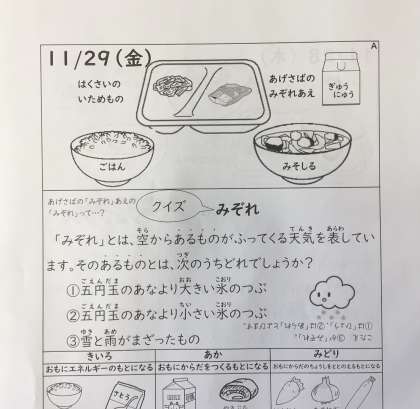 A
11/29(金)
はくさいの
いためもの
あげさばの
みぞれあえ
ぎゅう
にゅう
ごはん
みそしる
あげさばの「みぞれ」あえの
「みぞれ」って…?
クイズ
みぞれ
「みぞれ」とは、空からあるものがふってくる天気を表してい
ます。そのあるものとは、次のうちどれでしょうか?
①五円玉のあなより大きい氷のつぶ
②五円玉のあなより小さい氷のつぶ
③雪と雨がまざったもの
①は「ひょう」、②は「あられ」とよびます。
きいろ
あか
みどり
おもにエネルギーのもとになる
おもにからだをつくるもとになる
おもにからだのちょうしをととのえるもとになる
さとう